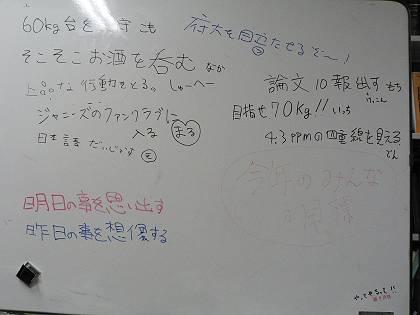 60kg台を 守 こも
府大を目立たせるぞ〜!
そこそこお酒を呑む なか
上品な 行動をとる。 しゅーへー
論文10報出す もち
けっこん
ジャニーズのファンクラブに
入る まる
目指せ70kg!! いっち
日本語 だいじょうず
4.3ppmの四重線を見る
でん
今年のみんな
の目標
明日の事を思い出す
昨日の事を想像する
やってやるって!!